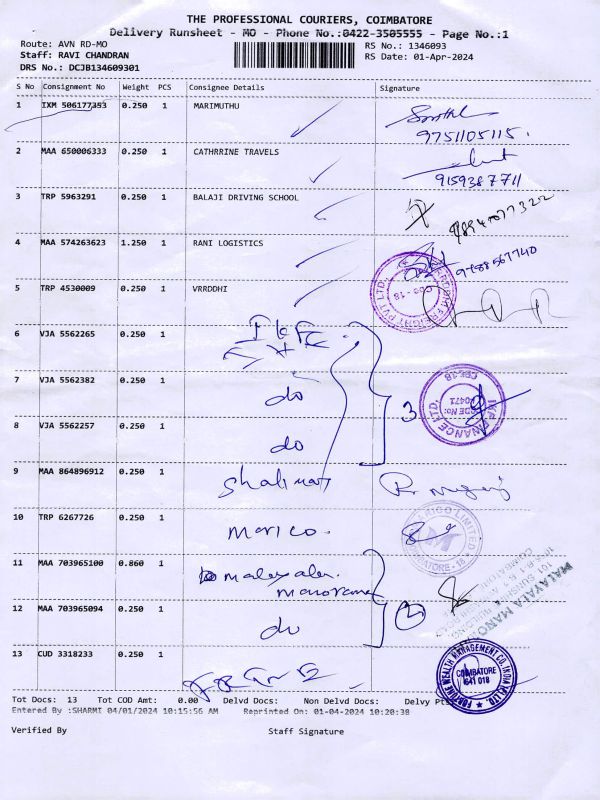 THE PROFESSIONAL COURIERS, COIMBATORE
Delivery Runsheet - MO - Phone No.:0422-3505555 - Page No.:1
Route: AVN RD-MO RS No.: 1346093
Staff: RAVI CHANDRAN RS Date: 01-Apr-2024
DRS No.: DCJB134609301
S No Consignment No Weight PCS Consignee Details Signature
1 IXM 506177353 0.250 1 MARIMUTHU
9751105115.
2 MAA 650006333 0.250 1 CATHRRINE TRAVELS
9159387711
3 TRP 5963291 0.250 1 BALAJI DRIVING SCHOOL
4 MAA 574263623 1.250 1 RANI LOGISTICS
9788567740
5 TRP 4530009 0.250 1 VRRDDHI
6 VJA 5562265 0.250 1
7 VJA 5562382 0.250 1 do
3
8 VJA 5562257 0.250 1 do
9 MAA 864896912 0.250 1
10 TRP 6267726 0.250 1 marico.
11 MAA 703965100 0.860 1 malayala
manorama
12 MAA 703965094 0.250 1 do 2
13 CUD 3318233 0.250 1
COIMBATORE
641 018
Tot Docs: 13 Tot COD Amt: 0.00 Delvd Docs: Non Delvd Docs: Delvy Pts
Entered By :SHARMI 04/01/2024 10:15:56 AM Reprinted On: 01-04-2024 10:20:38
Verified By Staff Signature